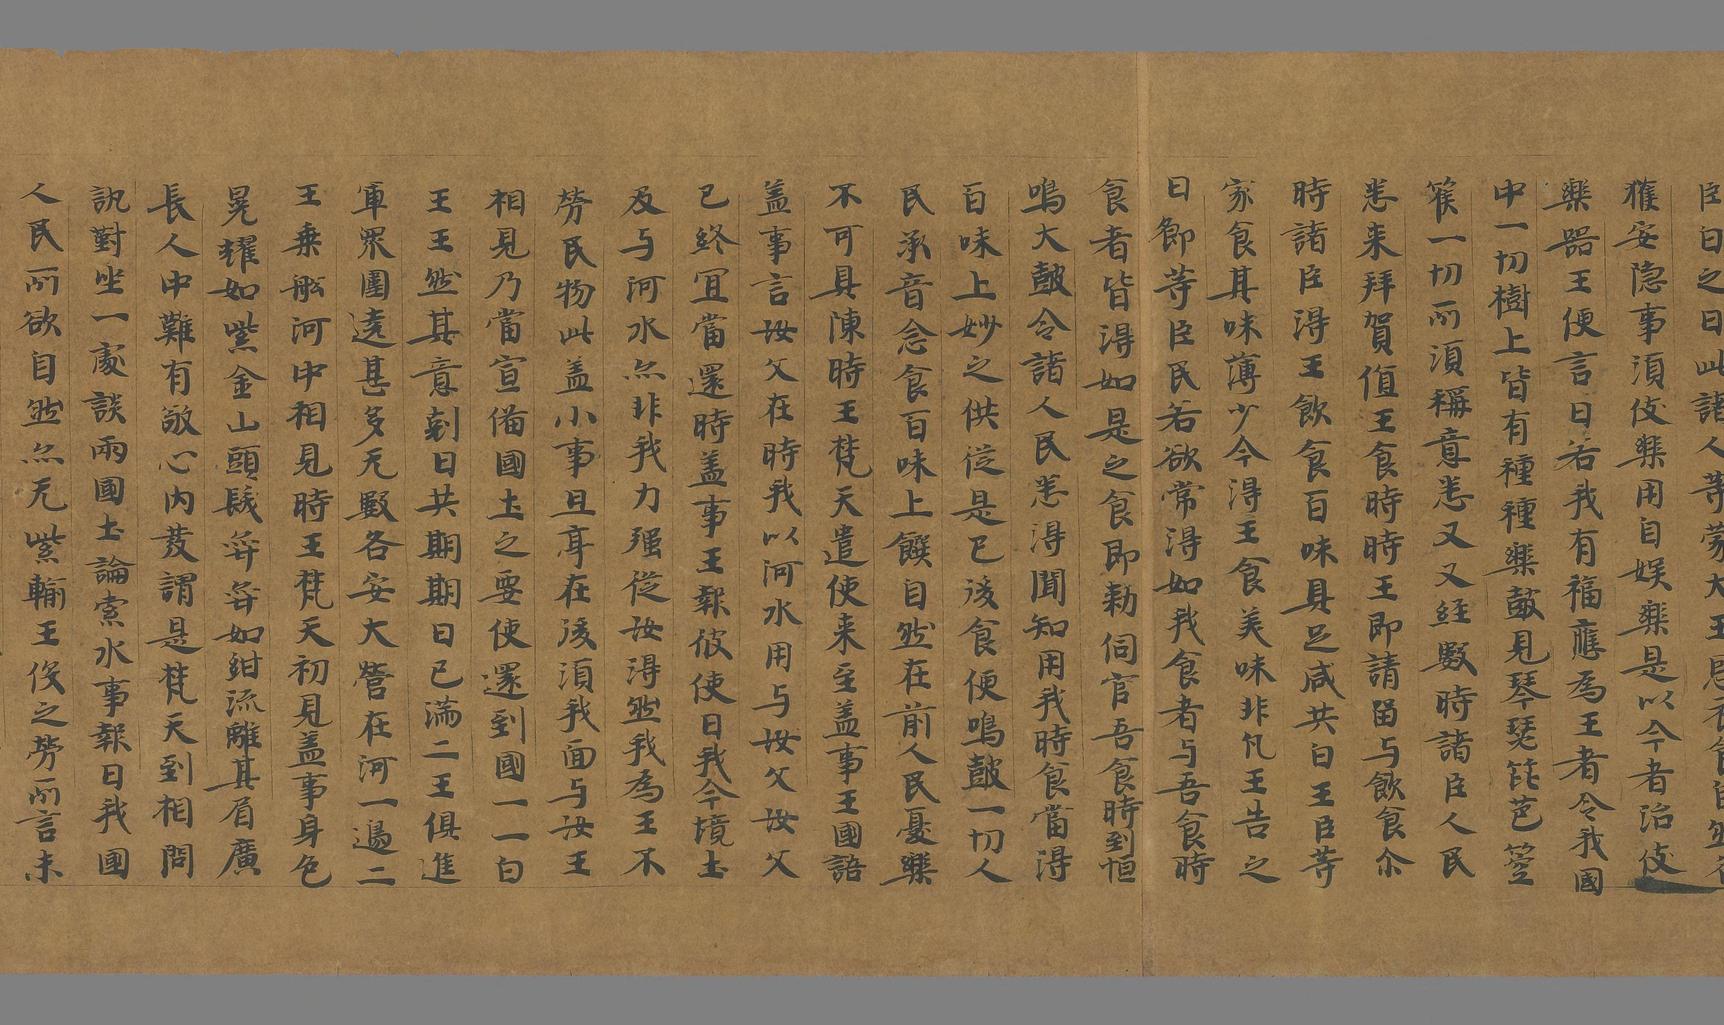 臣白之曰此諸人等蒙大王恩衣食自然
獲安隱事須伎樂用自娛樂是以今者治伎
樂器王便言曰若我有福應為王者令我國
中一切樹上皆有種種樂皷見琴瑟笓芭箜
篌一切所須稱意悉又又經數時諸臣人民
悉來拜賀值王食時時王即請留与飲食尒
時諸臣得王飲食百味具足咸共白王臣等
家食其味薄少今得王食美味非凡王告之
曰卿等臣民若欲常得如我食者与吾食時
食者皆得如是之食即勑伺官吾食時到恒
鳴大皷令諸人民悉得聞知用我時食當得
百味上妙之供從是已後食便鳴皷一切人
民承音念食百味上饌自然在前人民憂樂
不可具陳時王梵天遣使來至盖事王國語
盖事言汝父在時我以河水用与汝父汝父
已終宜當還時盖事王報彼使曰我今境土
及与河水亦非我力强從汝得然我為王不
勞民物此盖小事且亭在後須我面与汝王
相見乃當宣備國土之要使還到國一一白
王王然其意剋日共期期日已滿二王俱進
軍眾圍遶甚多无數各安大營在河一邊二
王乘舩河中相見時王梵天初見盖事身色
晃耀如紫金山頭髮弈弈如紺流離其眉廣
長人中難有敬心內發謂是梵天到相問
訊對坐一處談兩國土論索水事報曰我國
人民所欲自然亦无紫輸王役之勞所言未